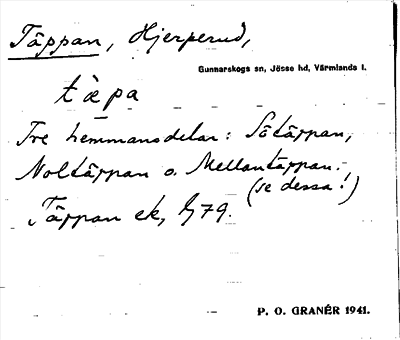 Täppan, Hjerperud,
Gunnarskogs sn, Jösse hd, Värmlands l.
tæpa
Tre hemmansdelar: Sötäppan,
Noltäppan o. Mellantäppan.
(se dessa!)
Täppan ek, 79.
P. O. GRANÉR 1941.